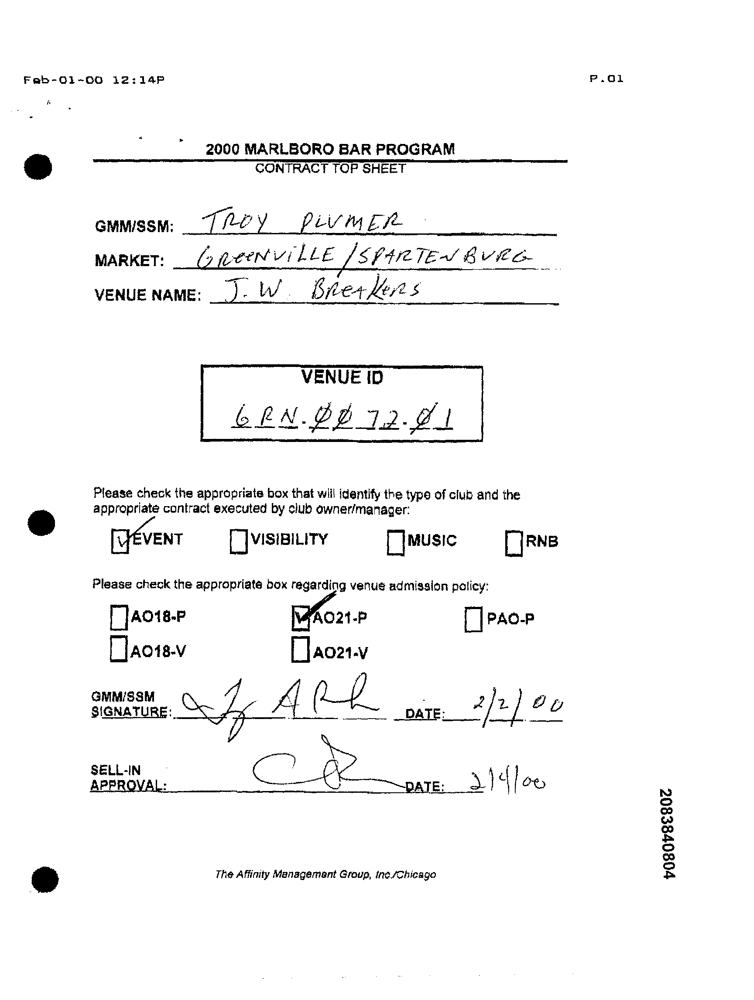 Feb-01-00 12:14P P.01
2000 MARLBORO BAR PROGRAM
CONTRACT TOP SHEET
GMM/SSM: TROY PLUMER
MARKET: GREENVILLE/SPARTENBURG
VENUE NAME: J.W. BREAKERS
VENUE ID
GRN.0072.01
Please check the appropriate box that will identify the type of club and the
appropriate contract executed by club owner/manager:
EVENT VISIBILITY MUSIC RNB
Please check the appropriate box regarding venue admission policy:
AO18-P AO21-P PAO-P
AO18-V AO21-V
GMM/SSM
SIGNATURE: DATE: 2/2/00
SELL-IN
APPROVAL: DATE: 2/4/00
The Affinity Management Group, Inc./Chicago
2083840804